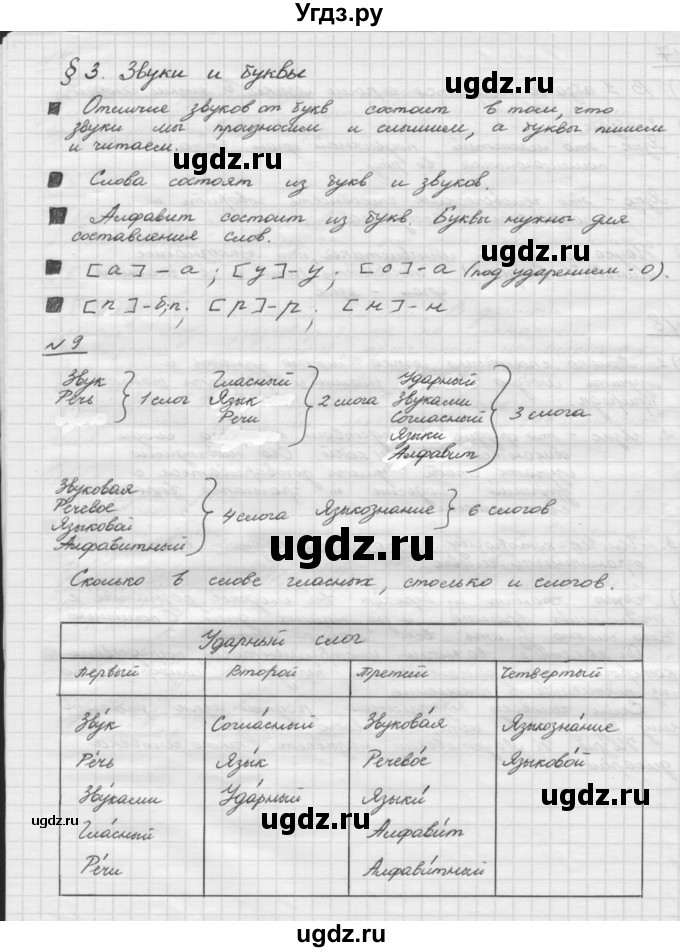 Угдз.ру
§ 3. Звуки и буквы
Отличие звуков от букв состоит в том, что
звуки мы произносим и слышим, а буквы пишем
и читаем.
ugdz.ru
ugdz.ru
Слова состоят из букв и звуков.
Алфавит состоит из букв. Буквы нужны для
составления слов.
ugdz.ru
[а] – а ; [у] – у ; [о] – а (под ударением - о).
[п] – б, п ; [р] – р ; [н] – н
№ 9
Звук
Речь
1 слог
Гласный
Язык
Речи
2 слога
Ударный
Звуками
Согласный
Языки
Алфавит
3 слога
Звуковая
Речевое
Языковой
Алфавитный
4 слога
Языкознание
6 слогов
ugdz.ru
Сколько в слове гласных, столько и слогов.
Ударный слог
Первый Второй Третий Четвертый
Зву́к Согла́сный Звукова́я Языкозна́ние
Ре́чь Язы́к Речево́е Языково́й
Зву́ками Уда́рный Языки́
Гла́сный Алфави́т
Ре́чи Алфави́тный
ugdz.ru
ugdz.ru
ugdz.ru
ugdz.ru
ugdz.ru